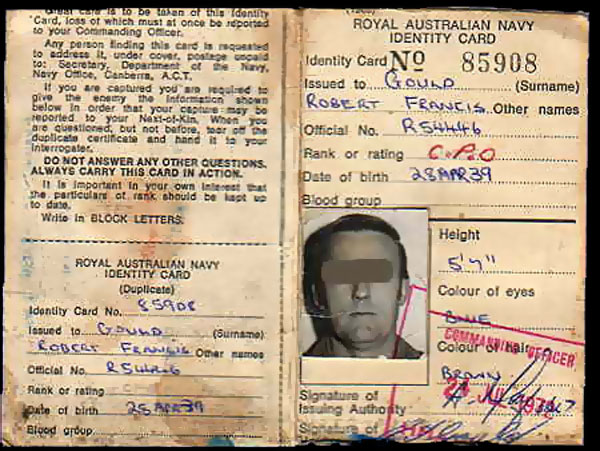 Great care is to be taken of this Identity
Card, loss of which must at once be reported
to your Commanding Officer.
Any person finding this card is requested
to address it, under cover, postage unpaid
to: Secretary, Department of the Navy,
Navy Office, Canberra, A.C.T.
If you are captured you are required to
give the enemy the information shown
below in order that your capture may be
reported to your Next-of-Kin. When you
are questioned, but not before, tear off the
duplicate certificate and hand it to your
interrogater.
DO NOT ANSWER ANY OTHER QUESTIONS.
ALWAYS CARRY THIS CARD IN ACTION.
It is important in your own interest that
the particulars of rank should be kept up
to date.
Write in BLOCK LETTERS.
ROYAL AUSTRALIAN NAVY
IDENTITY CARD
(Duplicate)
Identity Card No. 85908
Issued to GOULD (Surname)
ROBERT FRANCIS Other names
Official No. R54446
Rank or rating
Date of birth 28 APR 39
Blood group
ROYAL AUSTRALIAN NAVY
IDENTITY CARD
Identity Card No 85908
Issued to GOULD (Surname)
ROBERT FRANCIS Other names
Official No. R54446
Rank or rating C.P.O
Date of birth 28 APR 39
Blood group
Height
5'7"
Colour of eyes
BLUE
COMMANDING OFFICER
Colour of hair
BROWN
Signature of
Issuing Authority
Signature of